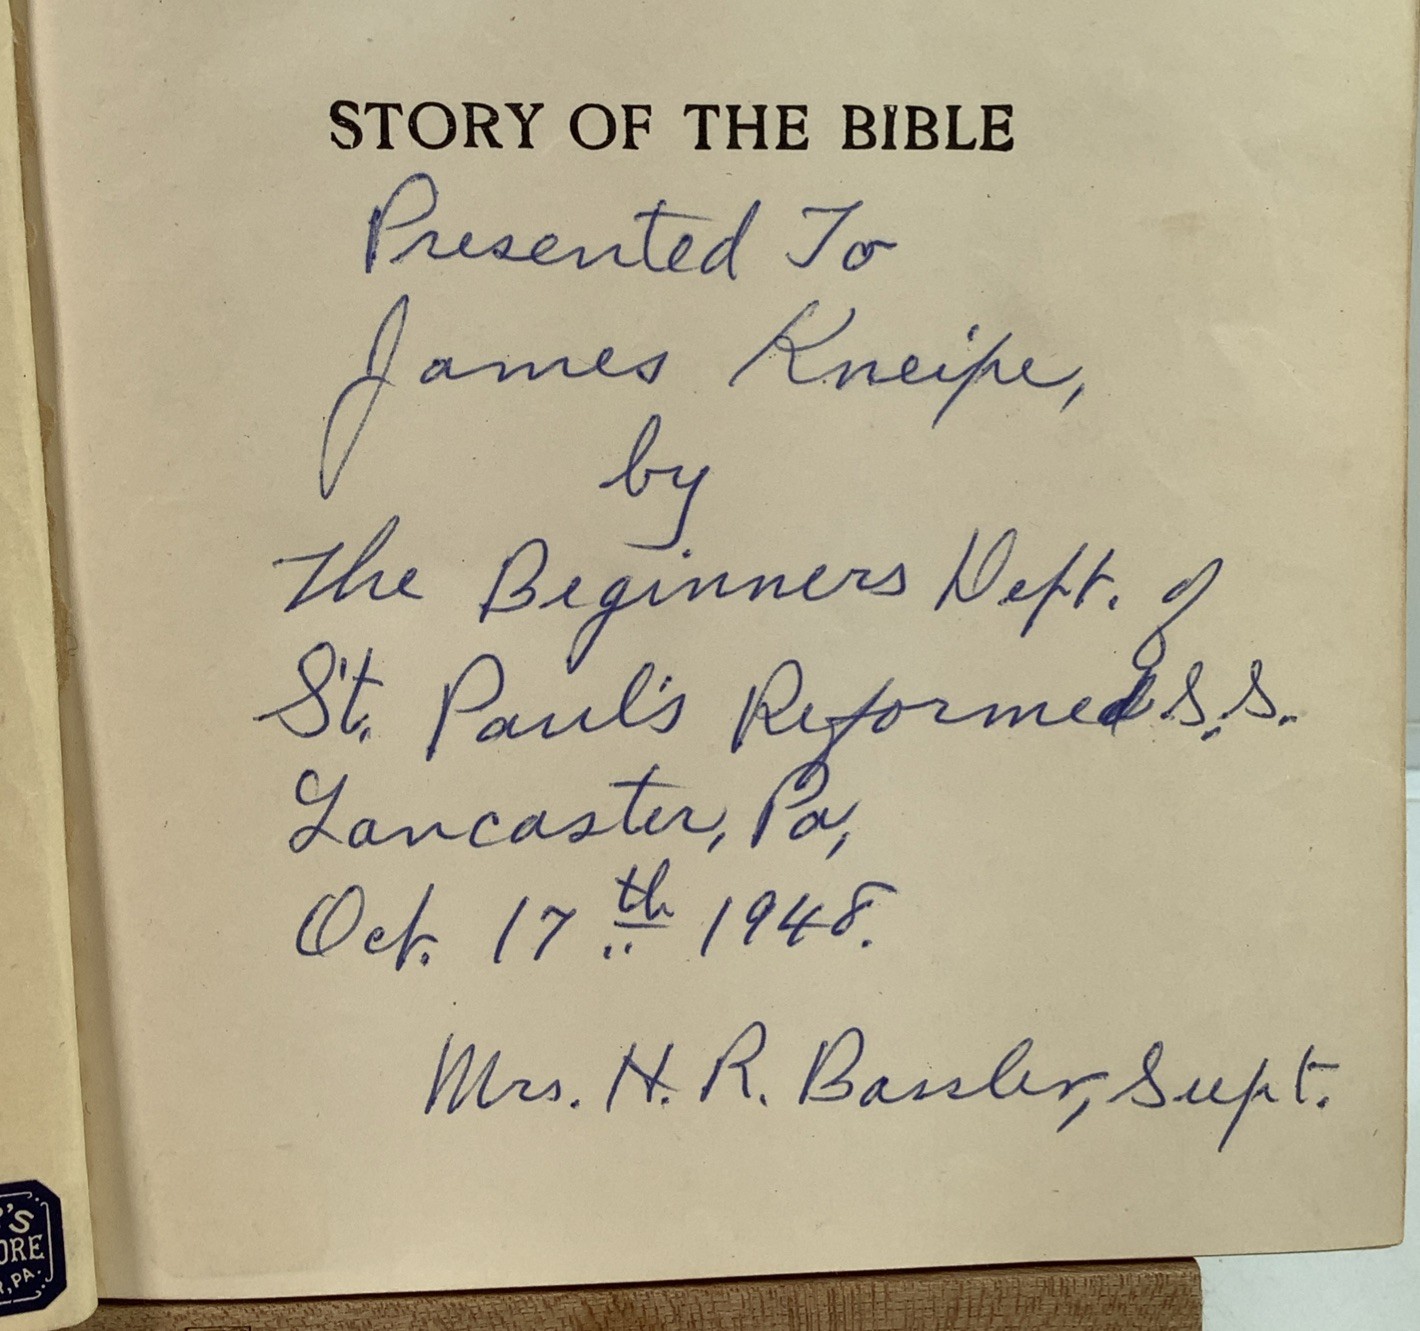 STORY OF THE BIBLE
Presented To
James Kneipe,
by
The Beginners Dept. of
St. Paul's Reformed S.S.
Lancaster, Pa,
Oct. 17th 1948.
Mrs. H. R. Bassler, Supt.
'S
ORE
R, PA.